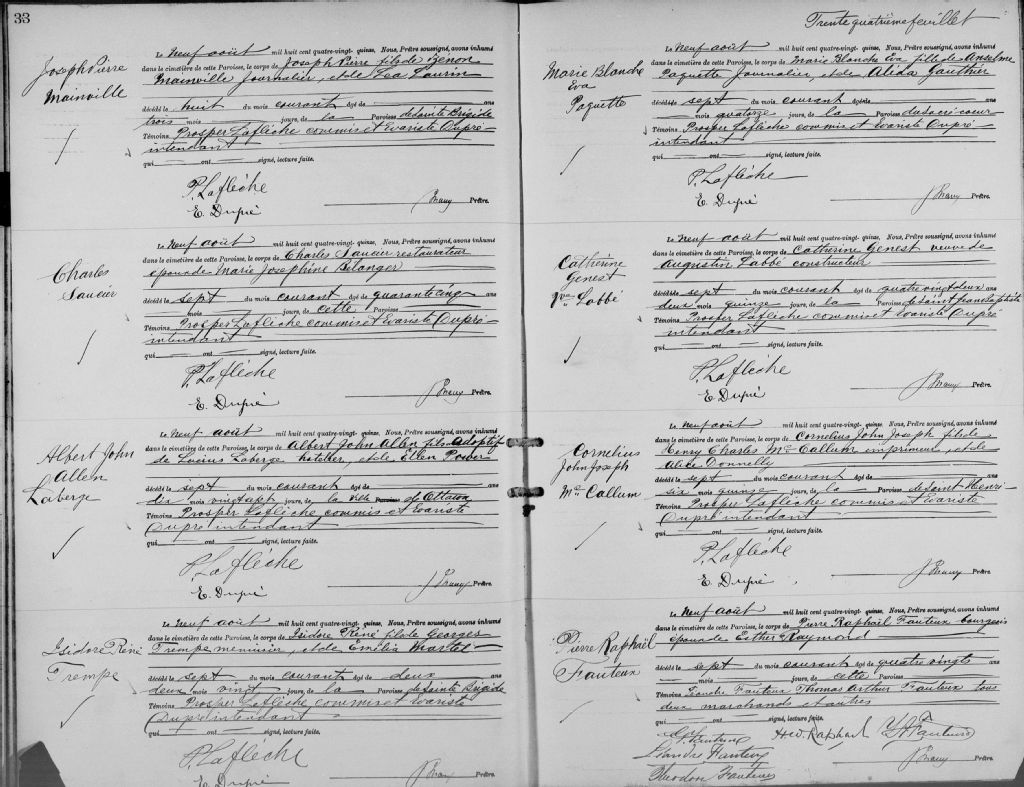 33
Joseph Pierre
Mainville
Le Neuf août mil huit cent quatre-vingt-quinze, Nous, Prêtre soussigné, avons inhumé
dans le cimetière de cette Paroisse, le corps de Joseph Pierre fils de Zenon
Mainville Journalier, et de Lea Laurin
décédé le huit du mois courant âgé de ans
trois mois jours, de la Paroisse de Sainte Brigide
Témoins Prosper Laflèche commis et Evariste Dupré
intendant
qui ont signé, lecture faite.
P. Laflèche
E. Dupré
Prêtre.
Charles
Saucier
Le Neuf août mil huit cent quatre-vingt-quinze, Nous, Prêtre soussigné, avons inhumé
dans le cimetière de cette Paroisse, le corps de Charles Saucier restaurateur
epoux de Marie Josephine Belanger
décédé le sept du mois courant âgé de quarante cinq ans
mois jours, de cette Paroisse
Témoins Prosper Laflèche commis et Evariste Dupré
intendant
qui ont signé, lecture faite.
P. Laflèche
E. Dupré
Prêtre.
Albert John
Allen
Laberge
Le Neuf août mil huit cent quatre-vingt-quinze, Nous, Prêtre soussigné, avons inhumé
dans le cimetière de cette Paroisse, le corps de Albert John Allen fils adoptif
de Lucius Laberge hotellier, et de Ellen Power
décédé le sept du mois courant âgé de ans
dix mois vingt sept jours, de la Ville Paroisse de Ottawa
Témoins Prosper Laflèche commis et Evariste
Dupré intendant
qui ont signé, lecture faite.
P. Laflèche
E. Dupré
Prêtre.
Isidore René
Trempe
Le Neuf août mil huit cent quatre-vingt-quinze, Nous, Prêtre soussigné, avons inhumé
dans le cimetière de cette Paroisse, le corps de Isidore René fils de Georges
Trempe menuisier, et de Emélia Martel
décédé le sept du mois courant âgé de deux ans
deux mois vingt jours, de la Paroisse de Sainte Brigide
Témoins Prosper Laflèche commis et Evariste
Dupré intendant
qui ont signé, lecture faite.
P. Laflèche
E. Dupré
Prêtre.
Trente quatrième feuillet
Marie Blanche
Eva
Paquette
Le Neuf août mil huit cent quatre-vingt-quinze, Nous, Prêtre soussigné, avons inhumé
dans le cimetière de cette Paroisse, le corps de Marie Blanche Eva fille de Anselme
Paquette Journalier, et de Alida Gauthier
décédé le sept du mois courant âgé de ans
mois quatorze jours, de la Paroisse du Sacré-coeur
Témoins Prosper Laflèche commis et Evariste Dupré
intendant
qui ont signé, lecture faite.
P. Laflèche
E. Dupré
Prêtre.
Catherine
Genest
Vve Labbé
Le Neuf août mil huit cent quatre-vingt-quinze, Nous, Prêtre soussigné, avons inhumé
dans le cimetière de cette Paroisse, le corps de Catherine Genest veuve de
Augustin Labbé constructeur
décédé le sept du mois courant âgé de quatre vingt deux ans
deux mois quinze jours, de la Paroisse de Saint
Témoins Prosper Laflèche commis et Evariste Dupré
intendant
qui ont signé, lecture faite.
P. Laflèche
E. Dupré
Prêtre.
Cornelius
John Joseph
Mc Callum
Le Neuf août mil huit cent quatre-vingt-quinze, Nous, Prêtre soussigné, avons inhumé
dans le cimetière de cette Paroisse, le corps de Cornelius John Joseph fils de
Henry Charles Mc Callum imprimeur, et de
Alice Donnelly
décédé le sept du mois courant âgé de ans
six mois quinze jours, de la Paroisse de Saint Henri
Témoins Prosper Laflèche commis et Evariste
Dupré intendant
qui ont signé, lecture faite.
P. Laflèche
E. Dupré
Prêtre.
Pierre Raphaël
Fauteux
Le Neuf août mil huit cent quatre-vingt-quinze, Nous, Prêtre soussigné, avons inhumé
dans le cimetière de cette Paroisse, le corps de Pierre Raphaël Fauteux bourgeois
epoux de Esther Raymond
décédé le sept du mois courant âgé de quatre vingts ans
mois jours, de cette Paroisse
Témoins Fauteux Thomas Arthur Fauteux tous
deux marchands et autres
qui ont signé, lecture faite.
H. W. Raphael
Fauteux
Prêtre.